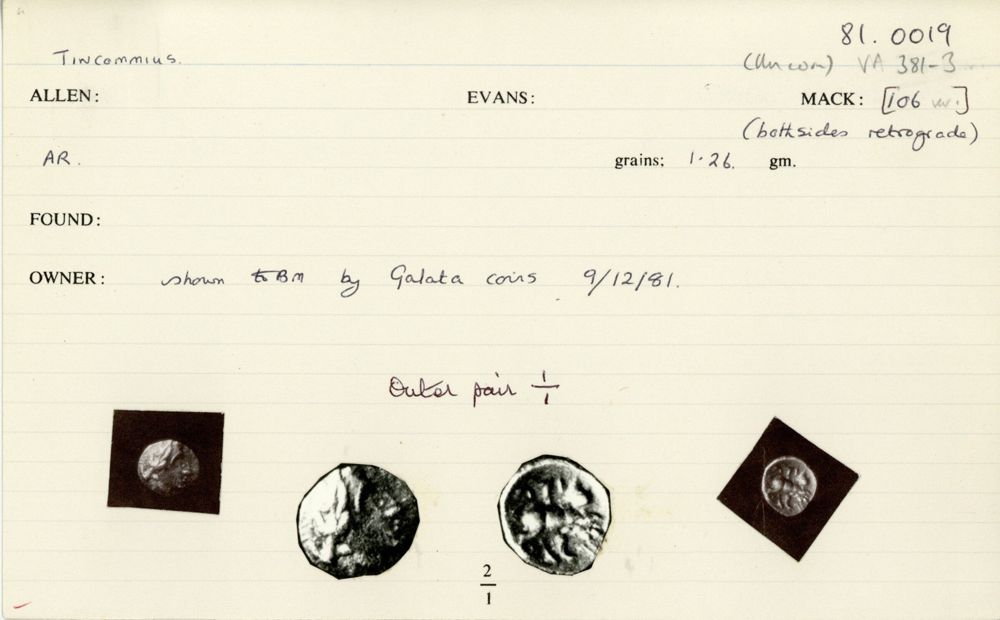 81. 0019
Tincommius.
(Uncon) VA 381-3
ALLEN: EVANS: MACK: [106 var.]
(both sides retrograde)
AR. grains; 1·26. gm.
FOUND:
OWNER: shown to BM by Galata coins 9/12/81.
Outer pair 1/1
2/1